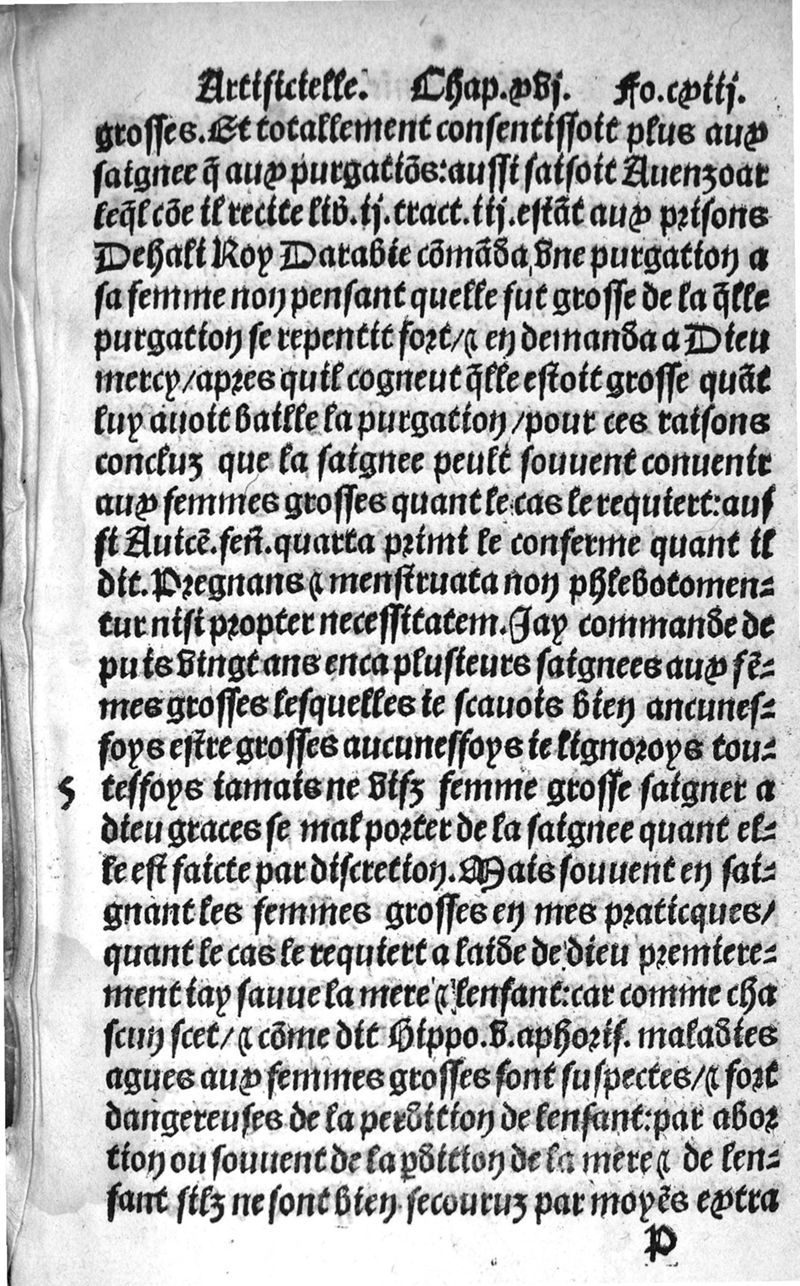 Artificielle. Chap.xvj. Fo.cxiij.
grosses. Et totallement consentissoit plus aux
saignee q̃ aux purgatiõs: aussi faisoit Auenzoar
leq̃l cõe il recite lib. ij. tract. iij. estãt aux prisons
Dehali Roy Darabie cõmãda vne purgation a
sa femme non pensant quelle fut grosse de la q̃lle
purgation se repentit fort/ ⁊ en demanda a Dieu
mercy/ apres quil cogneut q̃lle estoit grosse quãt
luy auoit baille la purgation/ pour ces raisons
concluz que la saignee peult souuent conuenir
aux femmes grosses quant le cas le requiert: aus
si Auicẽ. feñ. quarta primi le conferme quant il
dit. Pregnans ⁊ menstruata non phlebotomen-
tur nisi propter necessitatem. Jay commande de
puis vingt ans enca plusieurs saignees aux fẽ-
mes grosses lesquelles ie scauois bien ancunes-
foys estre grosses aucuneffoys ie lignoroys tou-
teffoys iamais ne visz femme grosse saigner a
dieu graces se mal porter de la saignee quant el-
le est faicte par discretion. Mais souuent en sai-
gnant les femmes grosses en mes praticques/
quant le cas le requiert a laide de dieu premiere-
ment iay sauue la mere ⁊ lenfant: car comme cha
scun scet/ ⁊ cõme dit Hippo. v. aphoris. maladies
agues aux femmes grosses sont suspectes/ ⁊ fort
dangereuses de la perdition de lenfant: par abor
tion ou souuent de la ꝑdition de la mere ⁊ de len-
fant silz ne sont bien secouruz par moyẽs extra
P